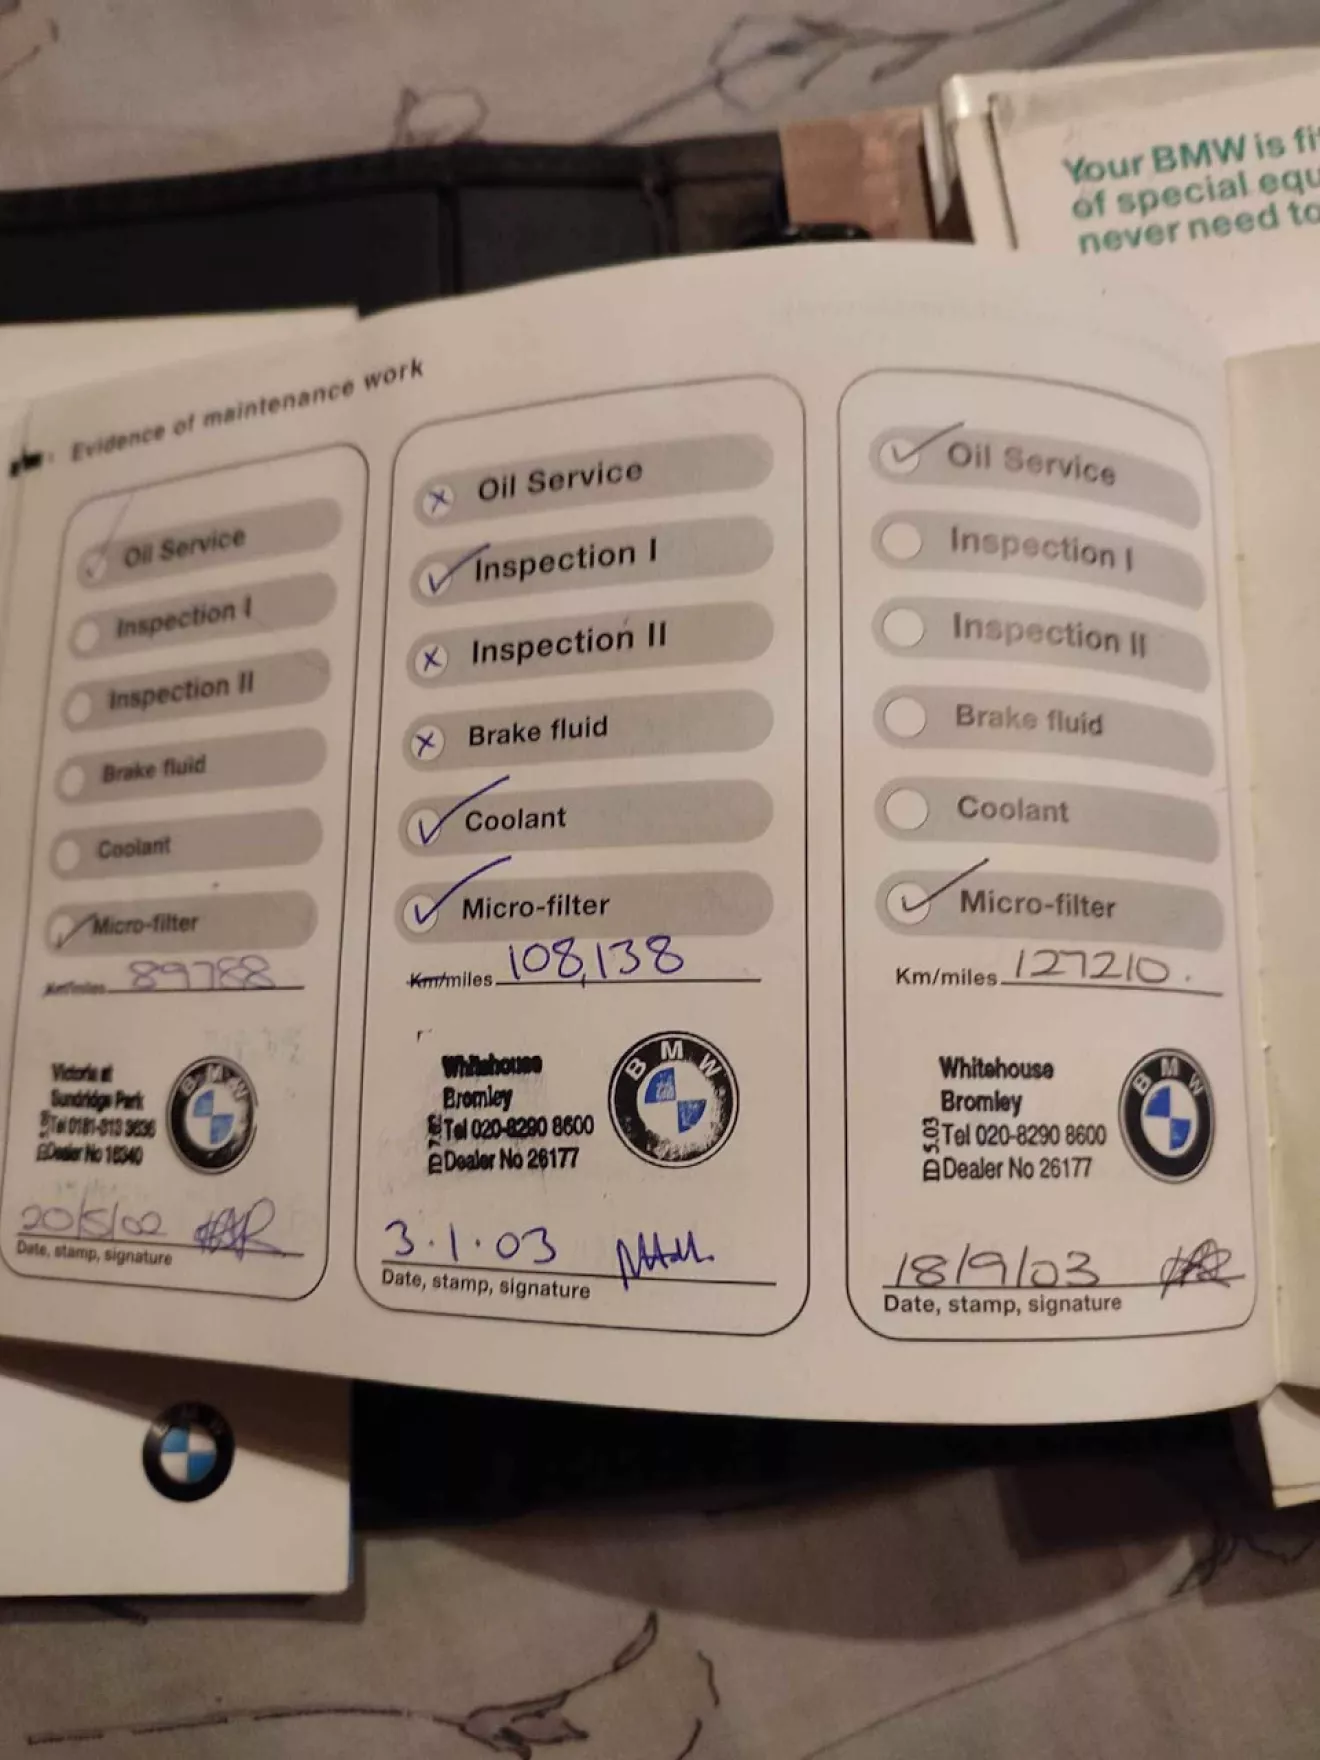 Your BMW is fi
of special equ
never need to
Evidence of maintenance work
Oil Service
Inspection I
Inspection II
Brake fluid
Coolant
Micro-filter
Km/miles 89788
Victoria at
Sundridge Park
Tel 0181-313 3636
Dealer No 16340
BMW
20/5/02
Date, stamp, signature
Oil Service
Inspection I
Inspection II
Brake fluid
Coolant
Micro-filter
Km/miles 108,138
Whitehouse
Bromley
Tel 020-8290 8600
Dealer No 26177
BMW
3.1.03
Date, stamp, signature
Oil Service
Inspection I
Inspection II
Brake fluid
Coolant
Micro-filter
Km/miles 127210.
Whitehouse
Bromley
Tel 020-8290 8600
Dealer No 26177
ID 5.03
BMW
18/9/03
Date, stamp, signature
BMW